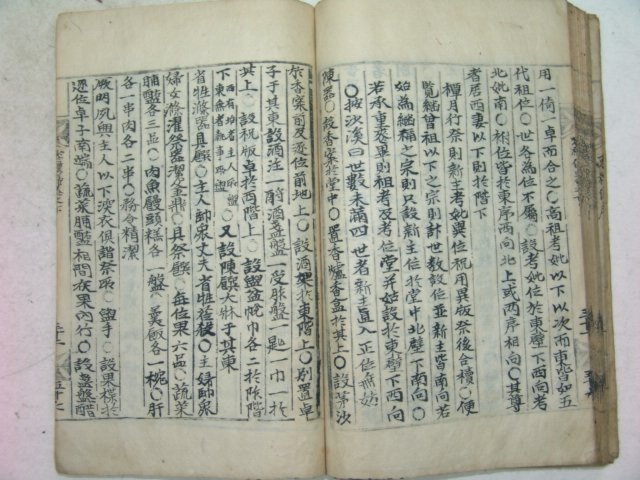 用一倚一卓而合之○高祖考妣以下以次而東皆如五
代祖位○世各爲位不屬○設考妣位於東壁下西向考
北妣南○祔位皆於東序西向北上或兩序相向○其尊
者居西妻以下則於階下
禫月行祭則新主考妣異位祝用異版祭後合櫝○便
覽繼曾祖以下之宗則計世數設位並新主皆南向若
始爲繼禰之宗則只設新主位於堂中北壁下南向○
若承重喪畢則祖考及考位堂並姑設於東壁下西向
○按沙溪曰世數未滿四世者新主直入正位無妨
陳器○設香案於堂中○置香爐香盒於其上○設茅沙
於香案前及逐位前地上○設酒架於東階上○別置卓
子于其東設酒注一酹酒盞盤一受胙盤一匙一巾一於
其上○設祝版卓於西階上○設盥盆帨巾各二於阼階
下東西有臺架者主人親屬所盥無者執事所盥○又設陳饌大牀于其東
省牲滌器具饌○主人帥衆丈夫省牲莅殺○主婦帥衆
婦女滌濯祭器潔釜鼎○具祭饌○每位果六品○蔬菜
脯醢各三品○肉魚饅頭糕各一盤○羹飯各一椀○肝
各一串肉各二串○務令精潔
厥明夙興主人以下深衣俱詣祭所○盥手○設果楪於
逐位卓子南端○蔬菜脯醢相間在果內行○設盞盤醋